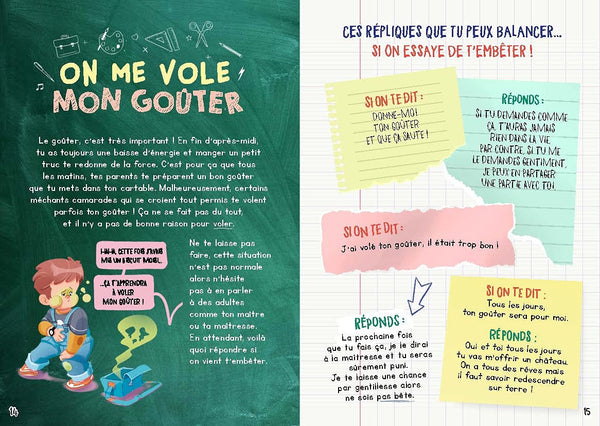 ON ME VOLE
MON GOÛTER
Le goûter, c'est très important ! En fin d'après-midi,
tu as toujours une baisse d'énergie et manger un petit
truc te redonne de la force. C'est pour ça que tous
les matins, tes parents te préparent un bon goûter
que tu mets dans ton cartable. Malheureusement, certains
méchants camarades qui se croient tout permis te volent
parfois ton goûter ! Ça ne se fait pas du tout,
et il n'y a pas de bonne raison pour voler.
HA-HA, CETTE FOIS J'AVAIS
MIS UN BISCUIT MOISI.
...ÇA T'APPRENDRA
À VOLER
MON GOÛTER !
Ne te laisse pas
faire, cette situation
n'est pas normale
alors n'hésite
pas à en parler
à des adultes
comme ton maître
ou ta maîtresse.
En attendant, voilà
quoi répondre si
on vient t'embêter.
14
CES RÉPLIQUES QUE TU PEUX BALANCER...
SI ON ESSAYE DE T'EMBÊTER !
SI ON TE DIT :
DONNE-MOI
TON GOÛTER
ET QUE ÇA SAUTE !
RÉPONDS :
SI TU DEMANDES COMME
ÇA, T'AURAS JAMAIS
RIEN DANS LA VIE.
PAR CONTRE, SI TU ME
LE DEMANDES GENTIMENT,
JE PEUX EN PARTAGER
UNE PARTIE AVEC TOI.
SI ON TE DIT :
J'ai volé ton goûter, il était trop bon !
RÉPONDS :
La prochaine fois
que tu fais ça, je le dirai
à la maîtresse et tu seras
sûrement puni.
Je te laisse une chance
par gentillesse alors
ne sois pas bête.
SI ON TE DIT :
Tous les jours,
ton goûter sera pour moi.
RÉPONDS :
Oui et toi tous les jours
tu vas m'offrir un château.
On a tous des rêves mais
il faut savoir redescendre
sur terre !
15